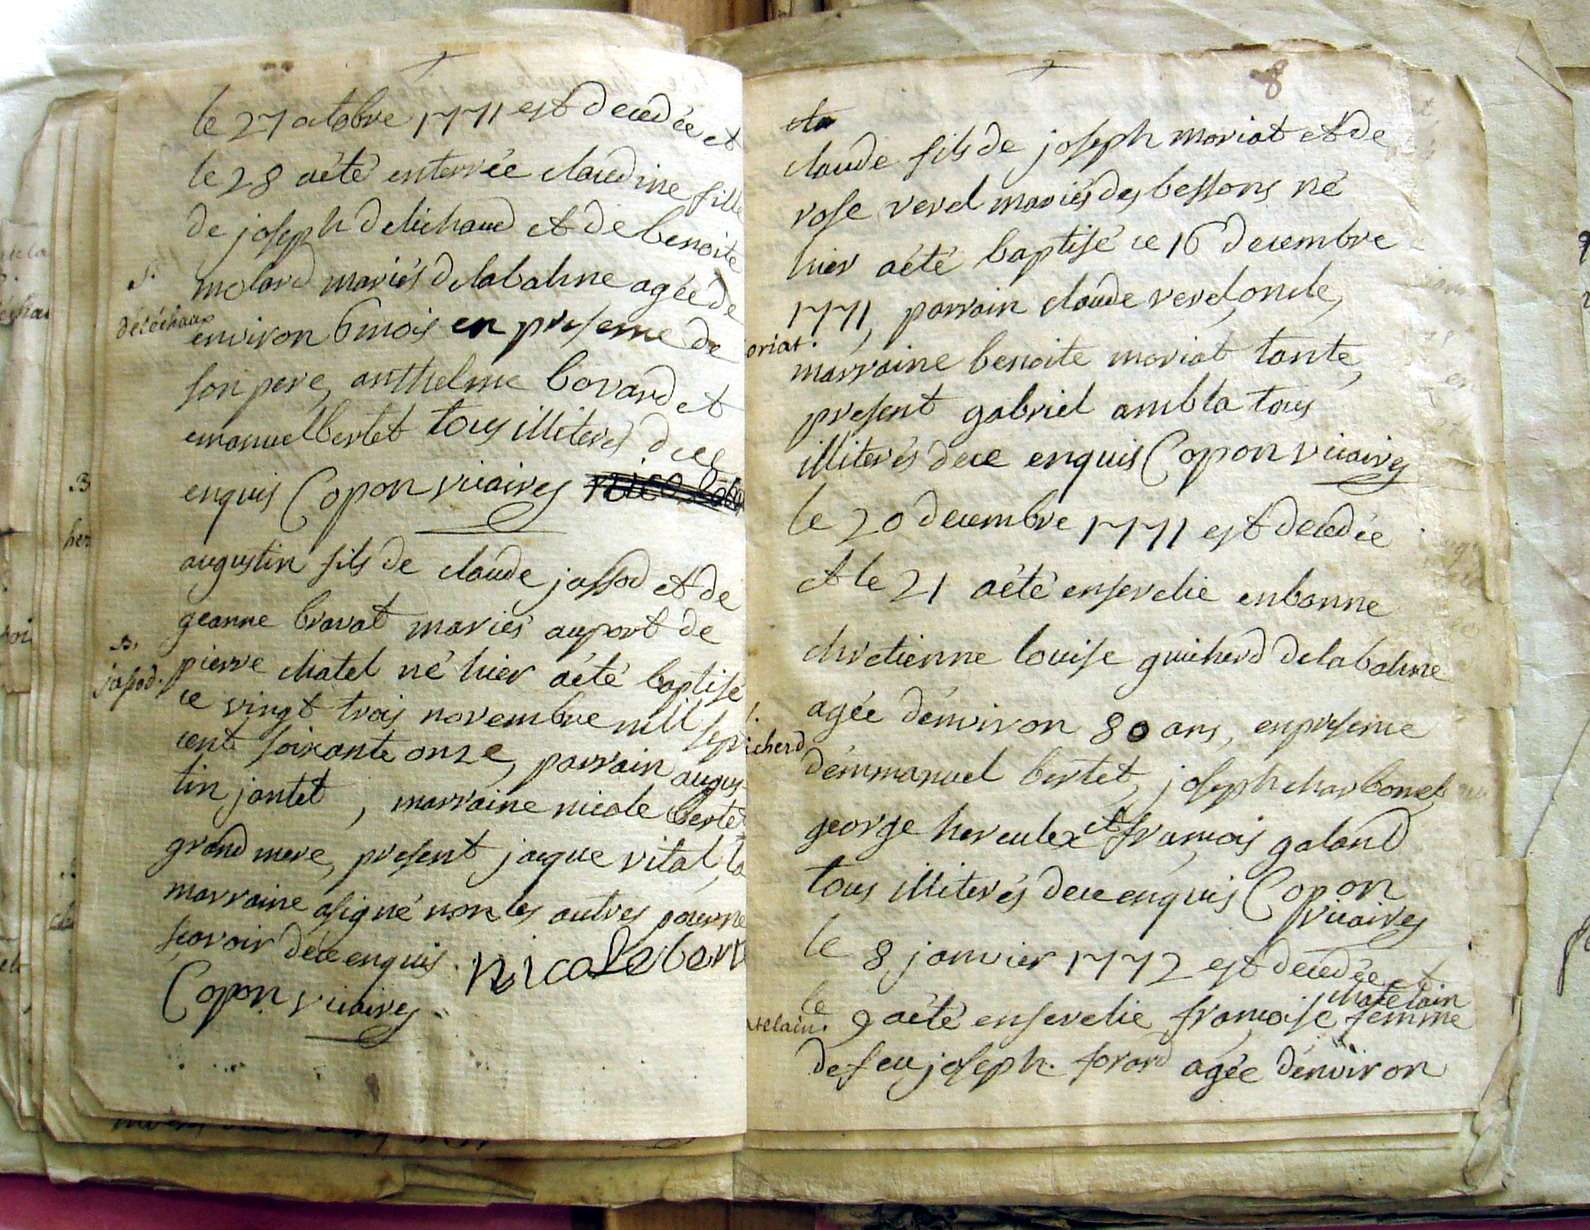 le 27 octobre 1771 est decedée et
le 28 aété enterrée claudine fille
de joseph delechaud et de benoite
molard mariés delabalme agée de
S.
deléchaux
environ 6 mois en presence de
son pere, anthelme bovard et
emanuel bertet tous illiterés dece
enquis Copon vicaires
augustin fils de claude jassod et de
geanne bravat mariés auport de
B.
jassod.
pierre chatel né hier aété baptisé
ce vingt trois novembre mill sept
cent soixante onze, parrain augus
tin jantet, marraine nicole berte
grand mere, present jacque vital, la
marraine asigné non les autres pour ne
scavoir dece enquis. nicole bert
Copon vicaires
8
claude fils de joseph moriat et de
rose verel mariés des bessons né
hier aété baptisé ce 16 decembre
1771, parrain claude verel, oncle,
oriat.
marraine benoite moriat tante,
present gabriel ambla tous
illiterés dece enquis Copon vicaires
le 20 decembre 1771 est decedée
et le 21 aété ensevelie enbonne
chretienne louise guicherd delabalme
agée denviron 80 ans, enpresence
icherd
demmanuel bertet, joseph charbonet
george hercule et francois galand
tous illiterés dece enquis Copon
vicaires
le 8 janvier 1772 est decedée et
chatelain
le 9 aété ensevelie francoise femme
atelain.
de feu joseph forard agée denviron